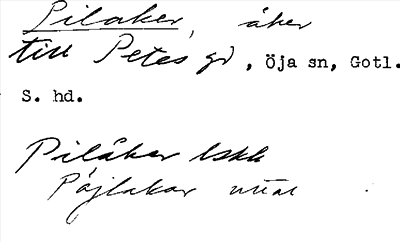 Pilaker, åker
till Petes gd, Öja sn, Gotl.
S. hd.
Pilåker lskk
Pöjlakar uttal